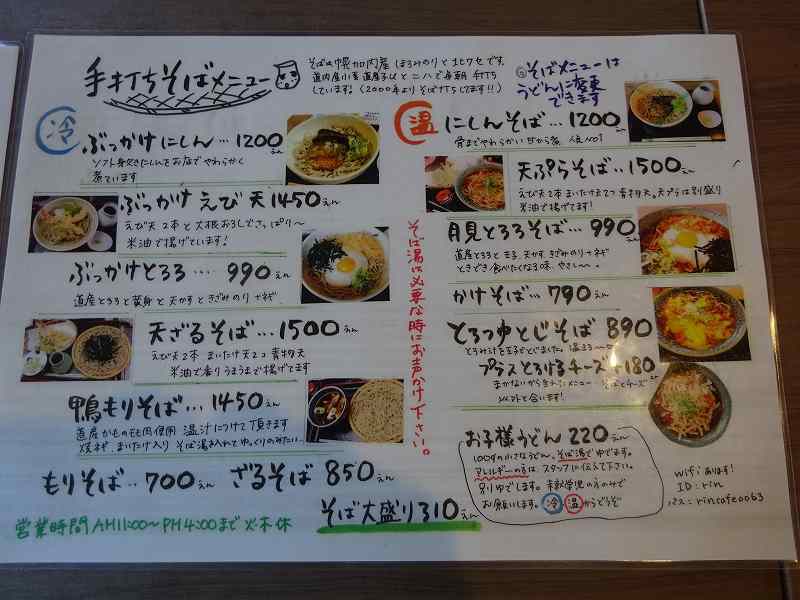 手打ちそばメニュー
そばは幌加内産 ほろみのりとキタワセです。
道内産小麦 道産子以と二八で毎朝 打ち
しています。(2000年よりそば打ちしてます!!)
◎そばメニューは
うどんに変更
できます
冷
ぶっかけにしん…1200えん
ソフト身欠きにしんをお店でやわらかく
煮ています
ぶっかけえび天1450えん
えび天2本と大根おろしでさっぱり〜
米油で揚げています!
ぶっかけとろろ…990えん
道産とろろと黄身と天かすときざみのり+ネギ
天ざるそば…1500えん
えび天2本 まいたけ天2コ 青物天
米油で香りうまうまで揚げてます
鴨もりそば…1450えん
道産かものもも肉使用 温汁につけて頂きます
焼ネギ、まいたけ入り そば湯入れてゆっくりのみたい。
もりそば‥700えん ざるそば 850えん
そば大盛り310えん
営業時間AM11:00〜PM4:00まで 火・木 休
そば湯は必要な時にお声かけ下さい。
温
にしんそば…1200えん
骨までやわらかい甘から煮 人気No1
天ぷらそば…1500えん
えび天2本まいたけ天2つ青物天。天プラは別盛り
米油で揚げてます!
月見とろろそば…990えん
道産とろろと玉子、天かす きざみのり+ネギ
ときどき食べたくなる味、やさし〜。
かけそば…790えん
とろつゆとじそば 890えん
とろみ汁を玉子でとじました。温まる〜
プラスとろけるチーズ+180
まかないから生まれたメニュー そばとチーズ
以外と合います!
お子様うどん 220えん
100gの小さなうどん。そば湯でゆでます。
アレルギーの方は、スタッフに伝えて下さい。
別ゆでします。未就学児の方のみで
お願いします。冷 温からどうぞ
wifiあります!
ID:rin
パス:rincafe0063